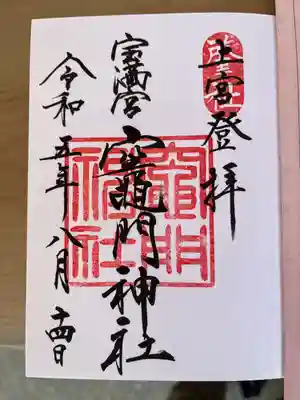 上宮登拝
宝満宮
竈門神社
令和五年八月十四日
竈門神社